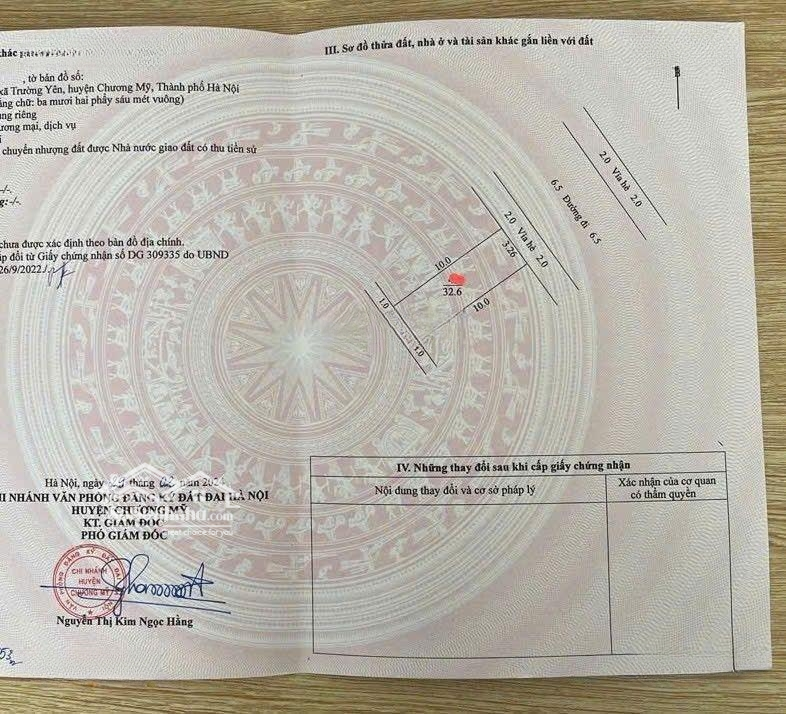 khác
III. Sơ đồ thửa đất, nhà ở và tài sản khác gắn liền với đất
, tờ bản đồ số:
xã Trường Yên, huyện Chương Mỹ, Thành phố Hà Nội
ằng chữ: ba mươi hai phẩy sáu mét vuông)
ụng riêng
ương mại, dịch vụ
chuyển nhượng đất được Nhà nước giao đất có thu tiền sử
-/-.
g:-/-.
chưa được xác định theo bản đồ địa chính.
ấp đổi từ Giấy chứng nhận số DG 309335 do UBND
26/9/2022
B
2.0 Vỉa hè 2.0
6.5 Đường đi 6.5
2.0 Vỉa hè 2.0
3.26
10.0
32.6
10.0
1.0
1.0
Hà Nội, ngày tháng 02 năm
HI NHÁNH VĂN PHÒNG ĐĂNG KÝ ĐẤT ĐAI HÀ NỘI
HUYỆN CHƯƠNG MỸ
KT. GIÁM ĐỐC
PHÓ GIÁM ĐỐC
VĂN PHÒNG ĐĂNG KÝ ĐẤT ĐAI
CHI NHÁNH
HUYỆN
CHƯƠNG MỸ
Nguyễn Thị Kim Ngọc Hằng
53
IV. Những thay đổi sau khi cấp giấy chứng nhận
Nội dung thay đổi và cơ sở pháp lý
Xác nhận của cơ quan
có thẩm quyền